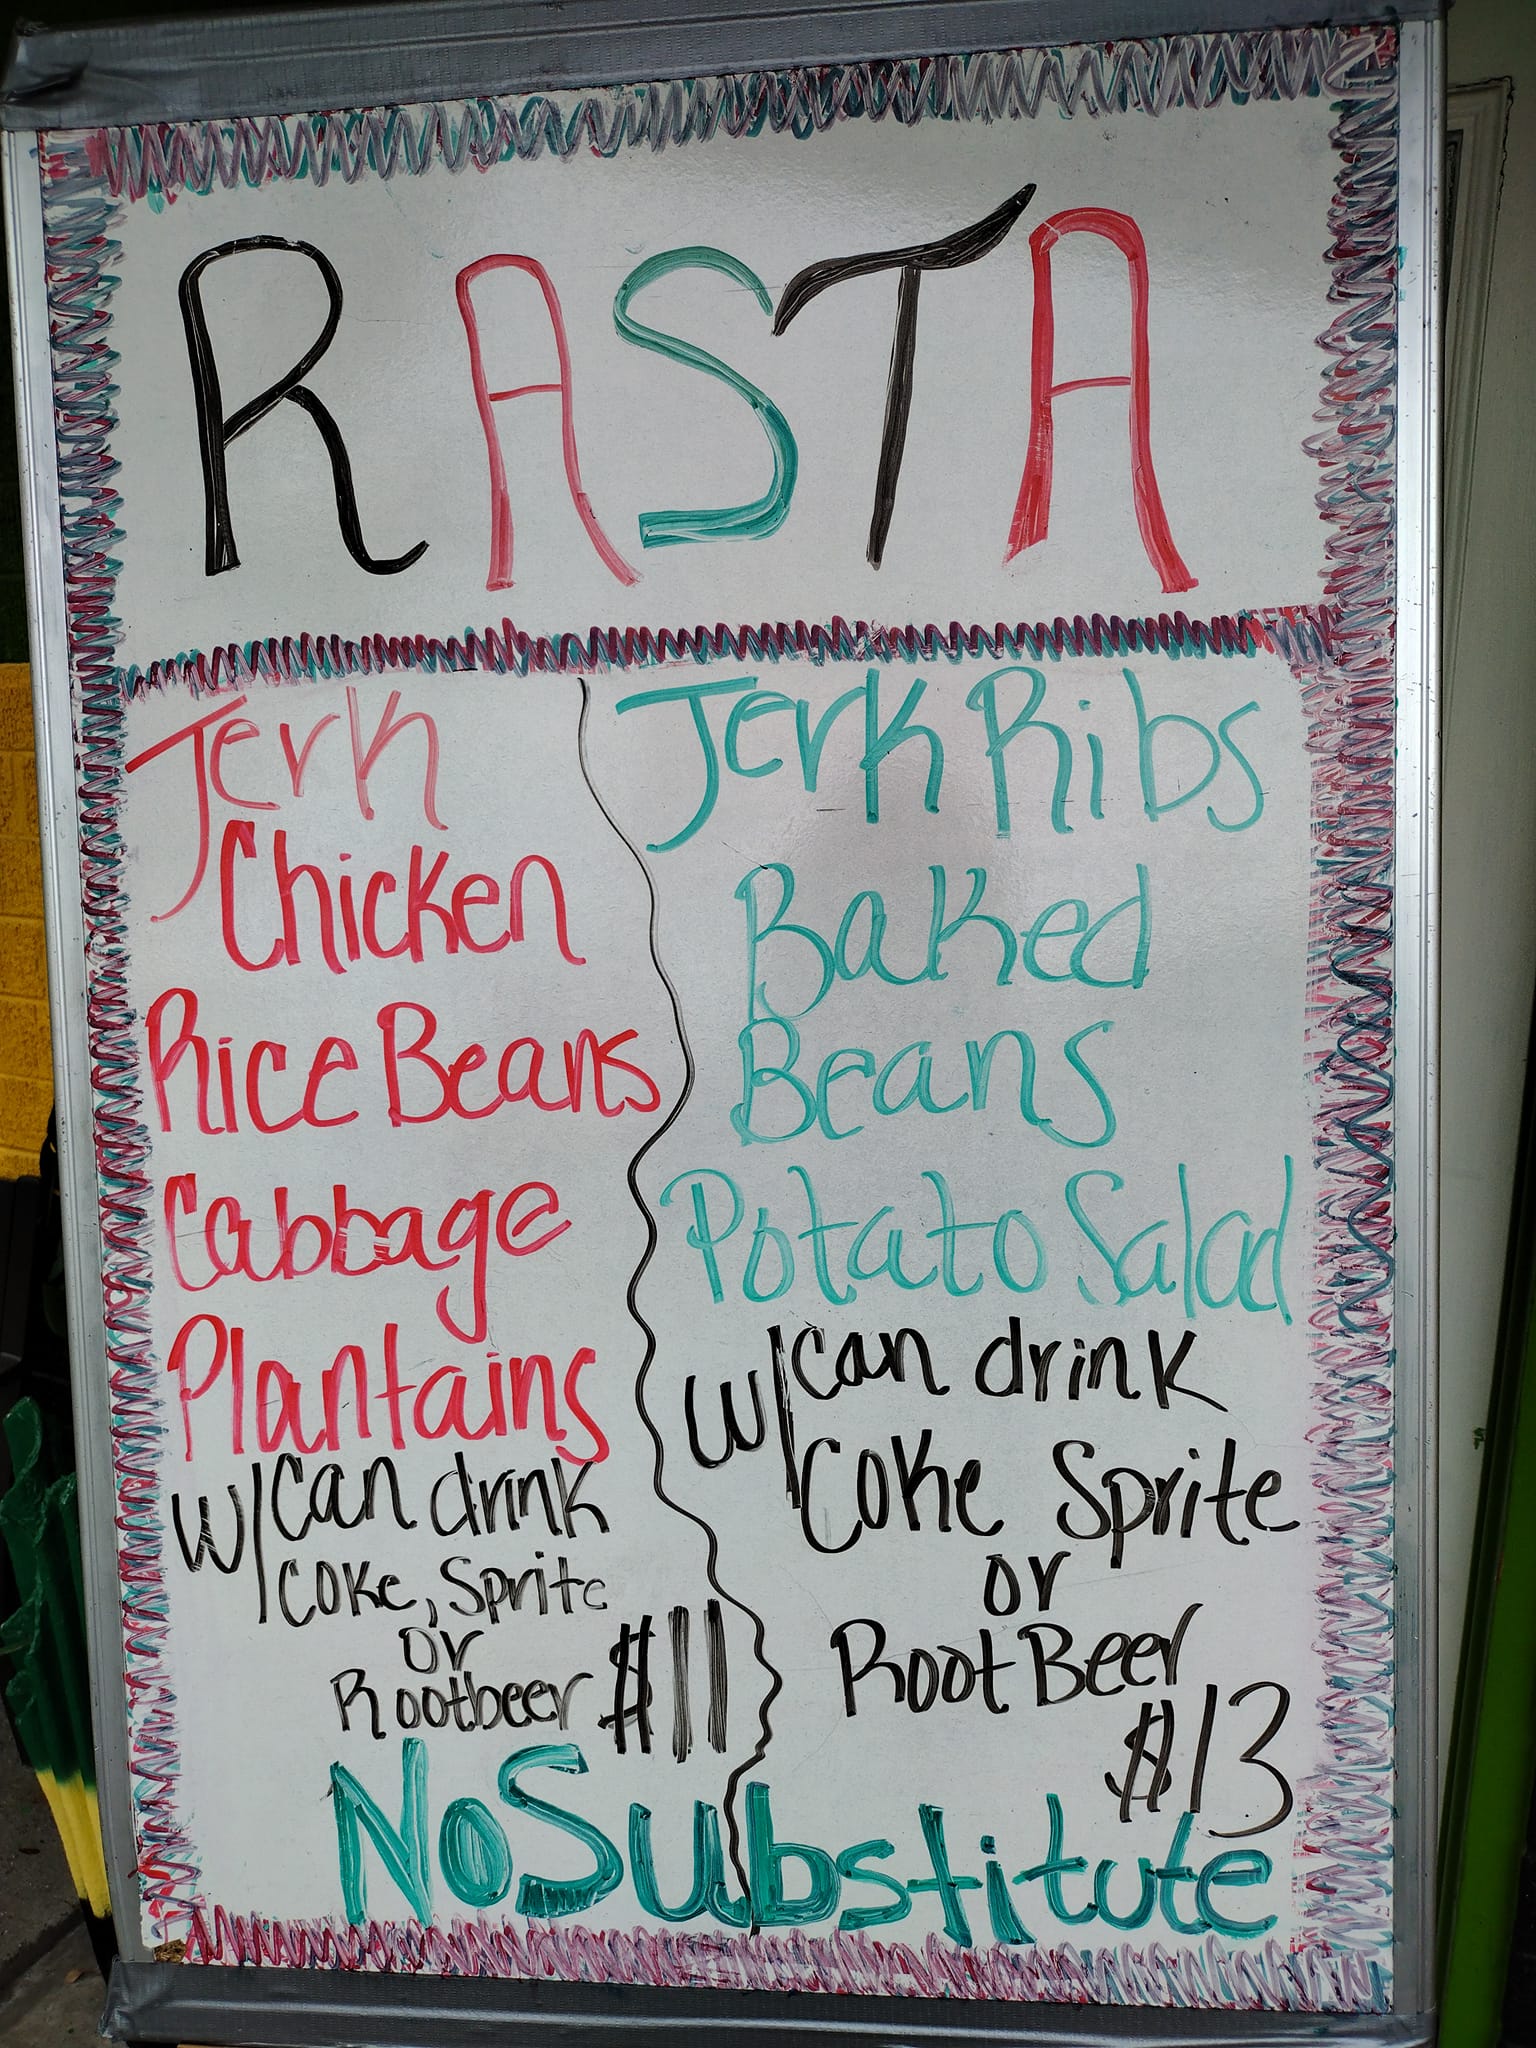 RASTA
Jerk
Chicken
Rice Beans
Cabbage
Plantains
w/can drink
Coke, Sprite
or
Rootbeer $11
Jerk Ribs
Baked
Beans
Potato Salad
w/can drink
Coke Sprite
or
Root Beer
$13
No Substitute